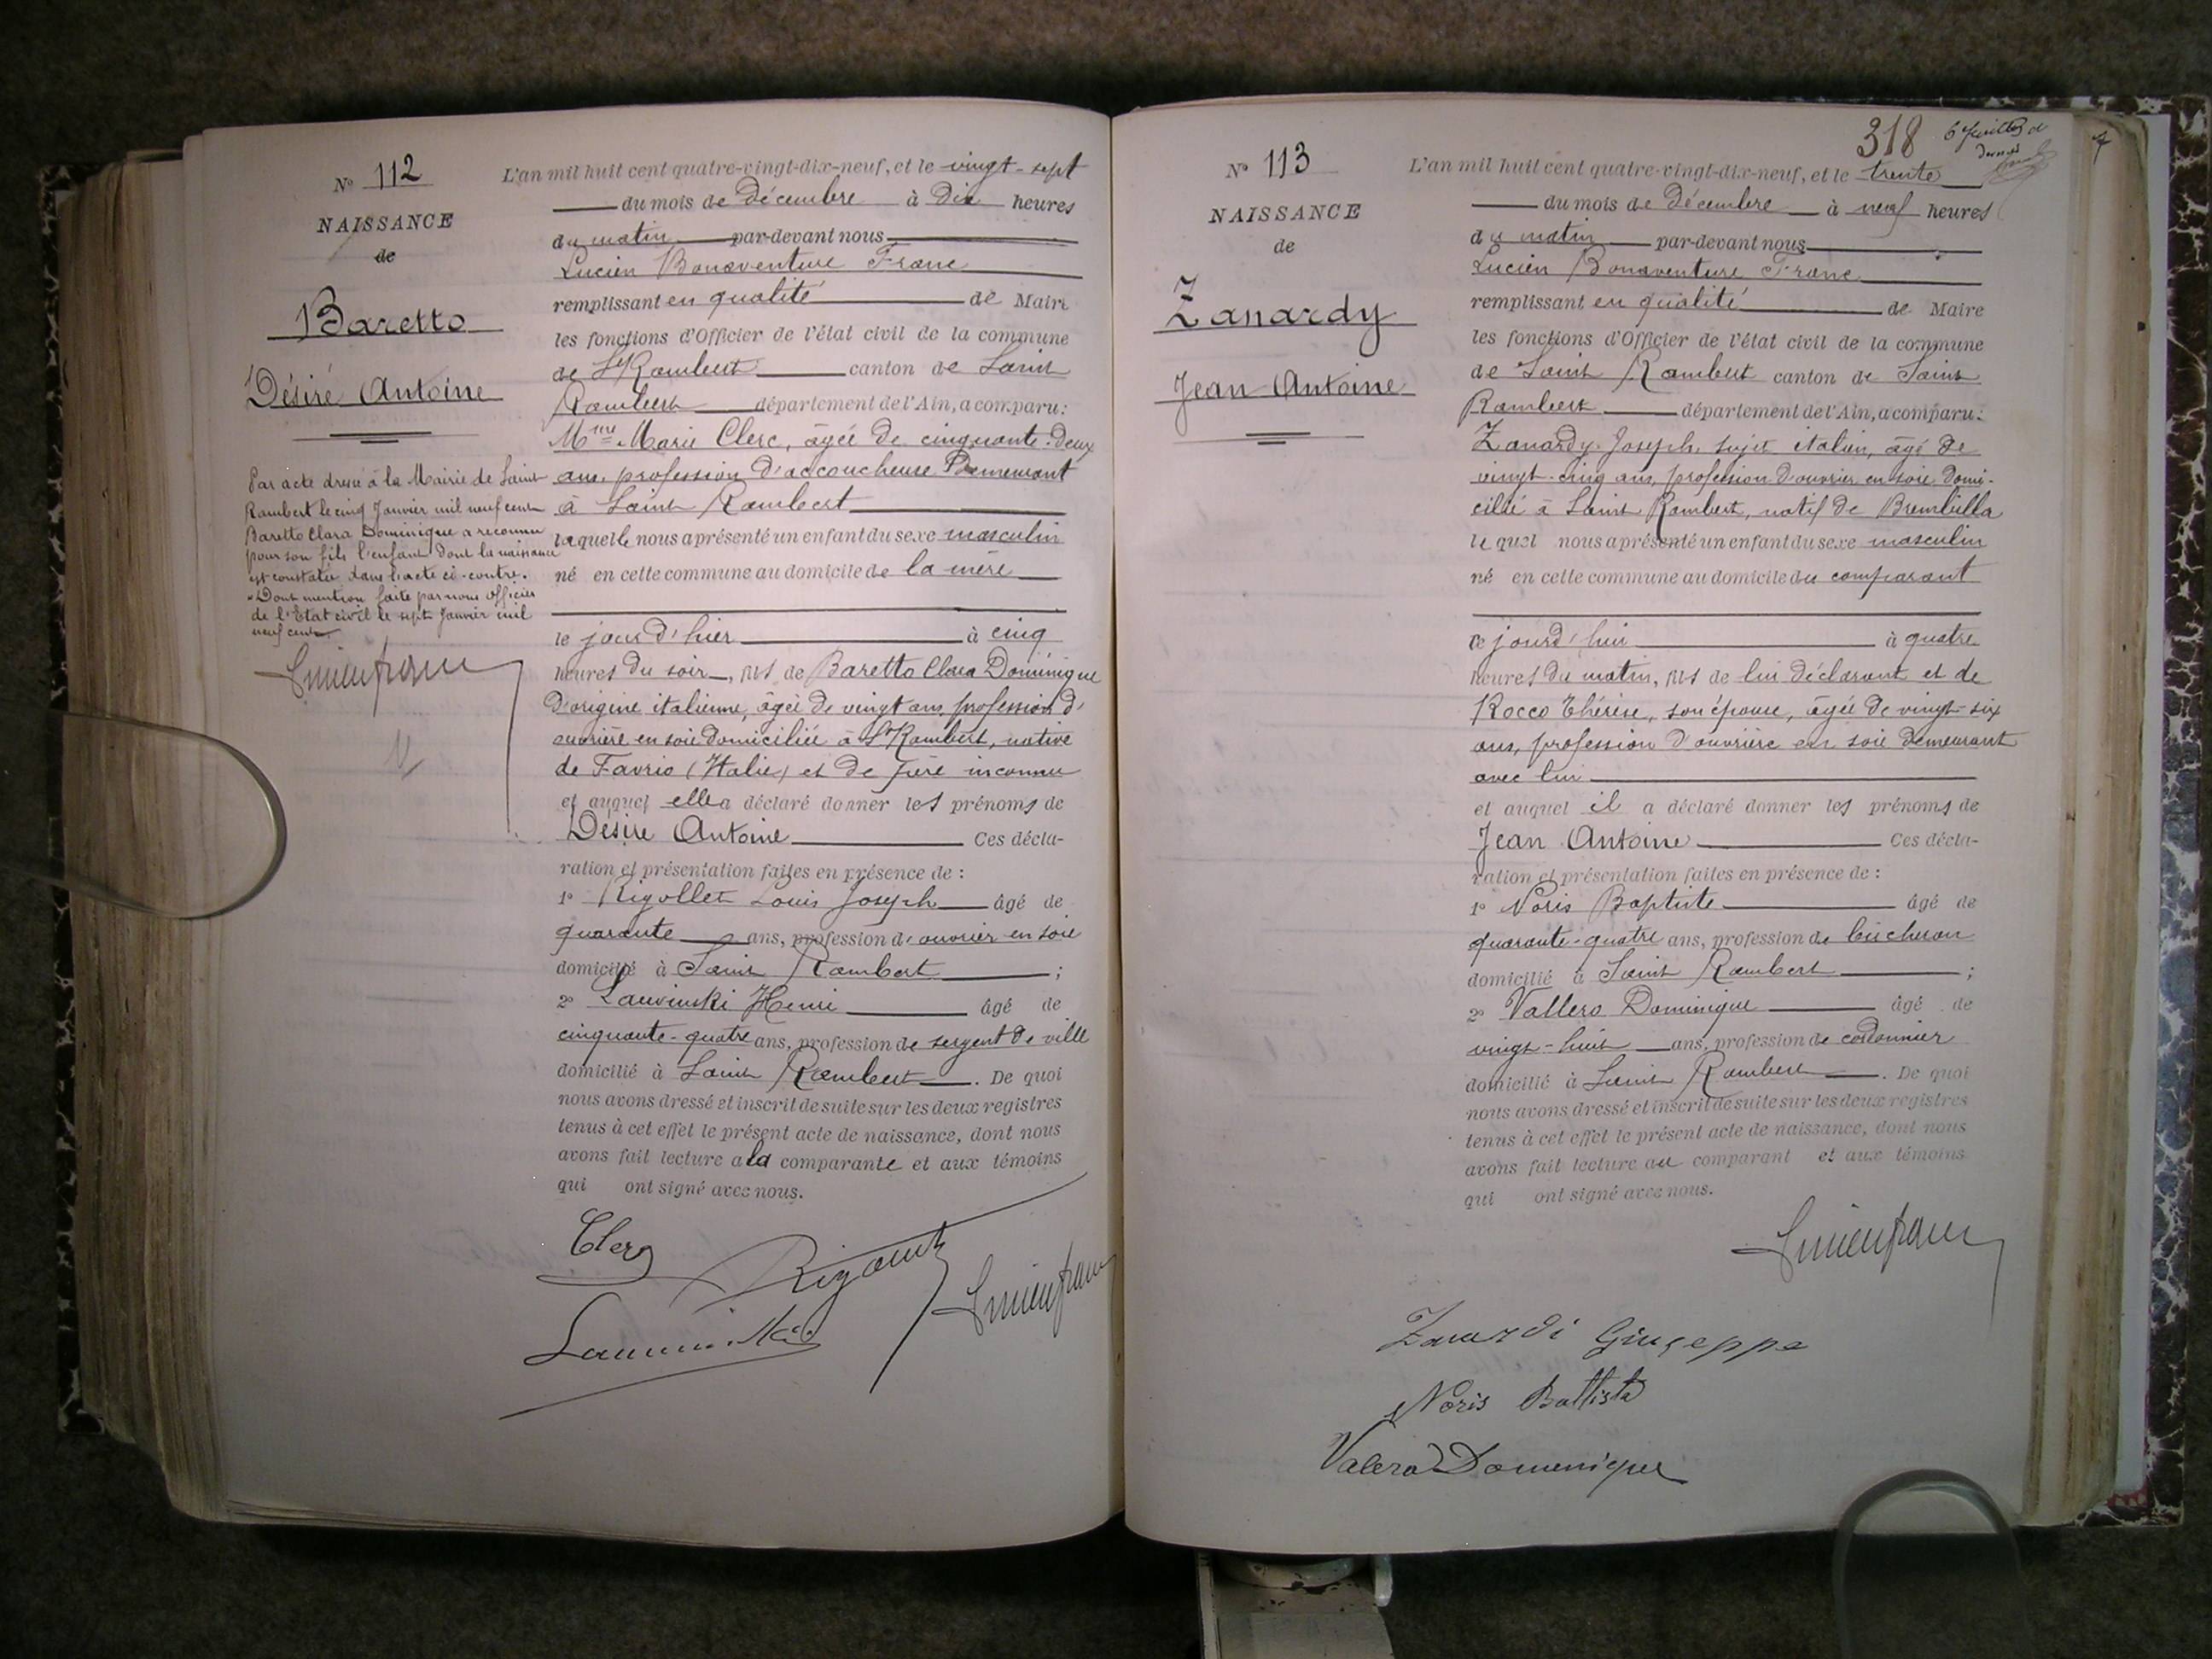 N° 112
NAISSANCE
de
Baretto
Désiré Antoine
Par acte dressé à la Mairie de Saint
Rambert le cinq Janvier mil neuf cent
Baretto Clara Dominique a reconnu
pour son fils l'enfant dont la naissance
est constatée dans l'acte ci-contre.
Dont mention faite par nous officier
de l'Etat civil le sept Janvier mil
neuf cent
Lucien franc
L'an mil huit cent quatre-vingt-dix-neuf, et le vingt-sept
du mois de Décembre à Dix heures
du matin par-devant nous
Lucien Bonaventure Franc
remplissant en qualité de Maire
les fonctions d'Officier de l'état civil de la commune
de St Rambert canton de Saint
Rambert département de l'Ain, a comparu:
Mme Marie Clerc, âgée de cinquante-deux
ans, profession d'accoucheuse Demeurant
à Saint Rambert
laquelle nous a présenté un enfant du sexe masculin
né en cette commune au domicile de la mère
le jour d'hier à cinq
heures du soir, fils de Baretto Clara Dominique
d'origine italienne, âgée de vingt ans, profession d'
ouvrière en soie domiciliée à St Rambert, native
de Favrio (Italie) et de père inconnu
et auquel elle a déclaré donner les prénoms de
Désiré Antoine Ces décla-
ration et présentation faites en présence de :
1° Rigollet Louis Joseph âgé de
quarante ans, profession d'ouvrier en soie
domicilié à Saint Rambert ;
2° Lauvinski Henri âgé de
cinquante-quatre ans, profession de sergent de ville
domicilié à Saint Rambert . De quoi
nous avons dressé et inscrit de suite sur les deux registres
tenus à cet effet le présent acte de naissance, dont nous
avons fait lecture a la comparante et aux témoins
qui ont signé avec nous.
Clerc
Lucien franc
318
6 feuillets et
dernier
7
N° 113
NAISSANCE
de
Zanardy
Jean Antoine
L'an mil huit cent quatre-vingt-dix-neuf, et le trente
du mois de Décembre à neuf heures
du matin par-devant nous
Lucien Bonaventure Franc
remplissant en qualité de Maire
les fonctions d'Officier de l'état civil de la commune
de Saint Rambert canton de Saint
Rambert département de l'Ain, a comparu:
Zanardy Joseph, sujet italien, âgé de
vingt-cinq ans, profession d'ouvrier en soie domi-
cilié à Saint Rambert, natif de Brembilla
lequel nous a présenté un enfant du sexe masculin
né en cette commune au domicile du comparant
ce jourd'hui à quatre
heures du matin, fils de lui déclarant et de
Rocco Thérèse, son épouse, âgée de vingt-six
ans, profession d'ouvrière en soie demeurant
avec lui
et auquel il a déclaré donner les prénoms de
Jean Antoine Ces décla-
ration et présentation faites en présence de :
1° Noris Baptiste âgé de
quarante-quatre ans, profession de bûcheron
domicilié à Saint Rambert ;
2° Vallero Dominique âgé de
vingt-huit ans, profession de cordonnier
domicilié à Saint Rambert . De quoi
nous avons dressé et inscrit de suite sur les deux registres
tenus à cet effet le présent acte de naissance, dont nous
avons fait lecture au comparant et aux témoins
qui ont signé avec nous.
Lucien franc
Zanardi Giuseppe
Noris Battista
Valero Domenique